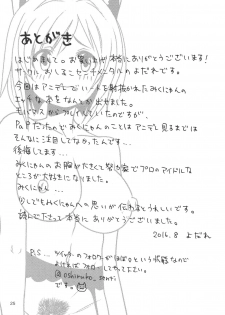 あとがき
はじめまして。お買い上げ本当にありがとうございまる!
サークル おしるこセンチメンタルの よだれです。
今回はアニデレで ハートを射抜かれたみくにゃんの
エッチな本をなんとか出せました。
モバマスからプレイしていたのですが、
PaPだったのでみくにゃんのことは アニデレ見るまでは
そんなに注目してなかったんです…
後悔してます…
みくにゃんの お胸がたきくて努力家でプロのアイドルな
ところが大好きになりました。
みくにゃん…
少しでもみくにゃんへの思いが伝わるとうれしいです。
読んで下さって本当に ありがとうございました。
2016.8 よだれ
P.S … ツイッターのフォロワーがほぼ0という状態なので
よければフォローしてやってください。
@oshiruko_senti
です。